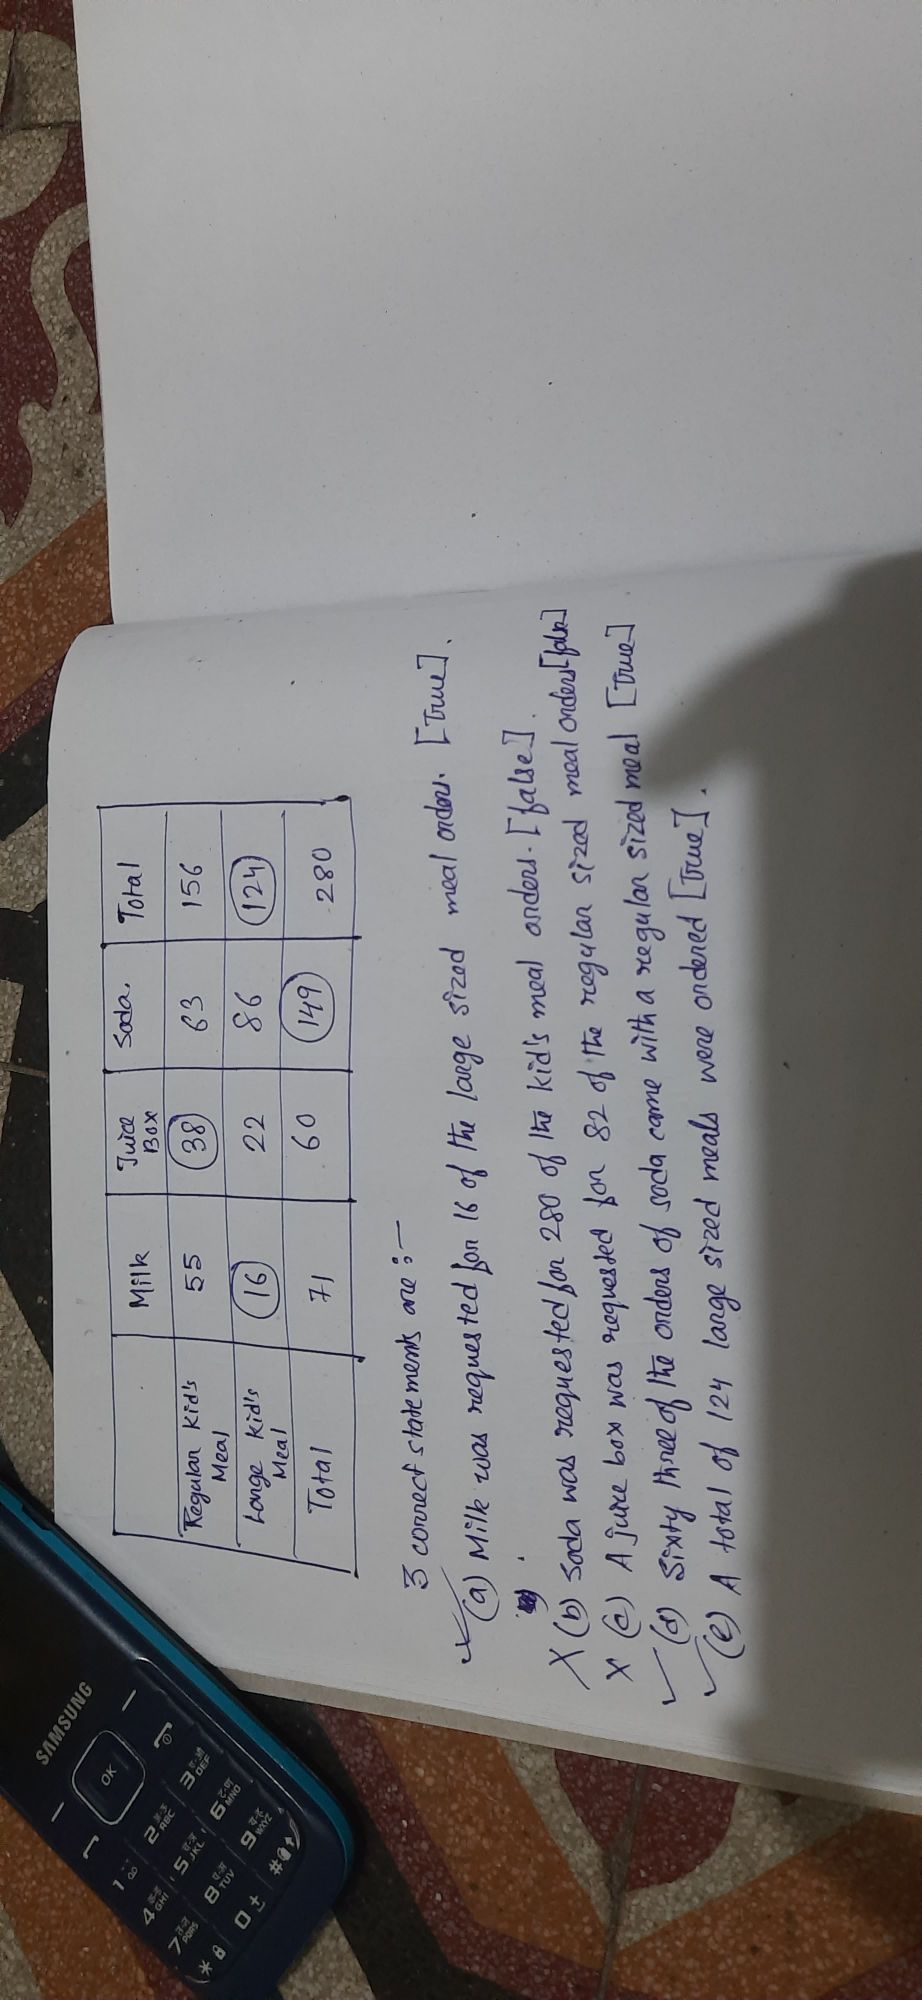 Milk Juice Box Soda. Total
Regular Kid's Meal 55 38 63 156
Large Kid's Meal 16 22 86 124
Total 71 60 149 280
3 correct statements are :-
(a) Milk was requested for 16 of the large sized meal orders. [True].
X (b) Soda was requested for 280 of the kid's meal orders. [false].
X (c) A juice box was requested for 82 of the regular sized meal orders [false]
(d) Sixty three of the orders of soda came with a regular sized meal [True]
(e) A total of 124 large sized meals were ordered [True].
SAMSUNG
OK
1 2 ABC 3 DEF
4 GHI 5 JKL 6 MNO
7 PQRS 8 TUV 9 WXYZ
* 0 + #